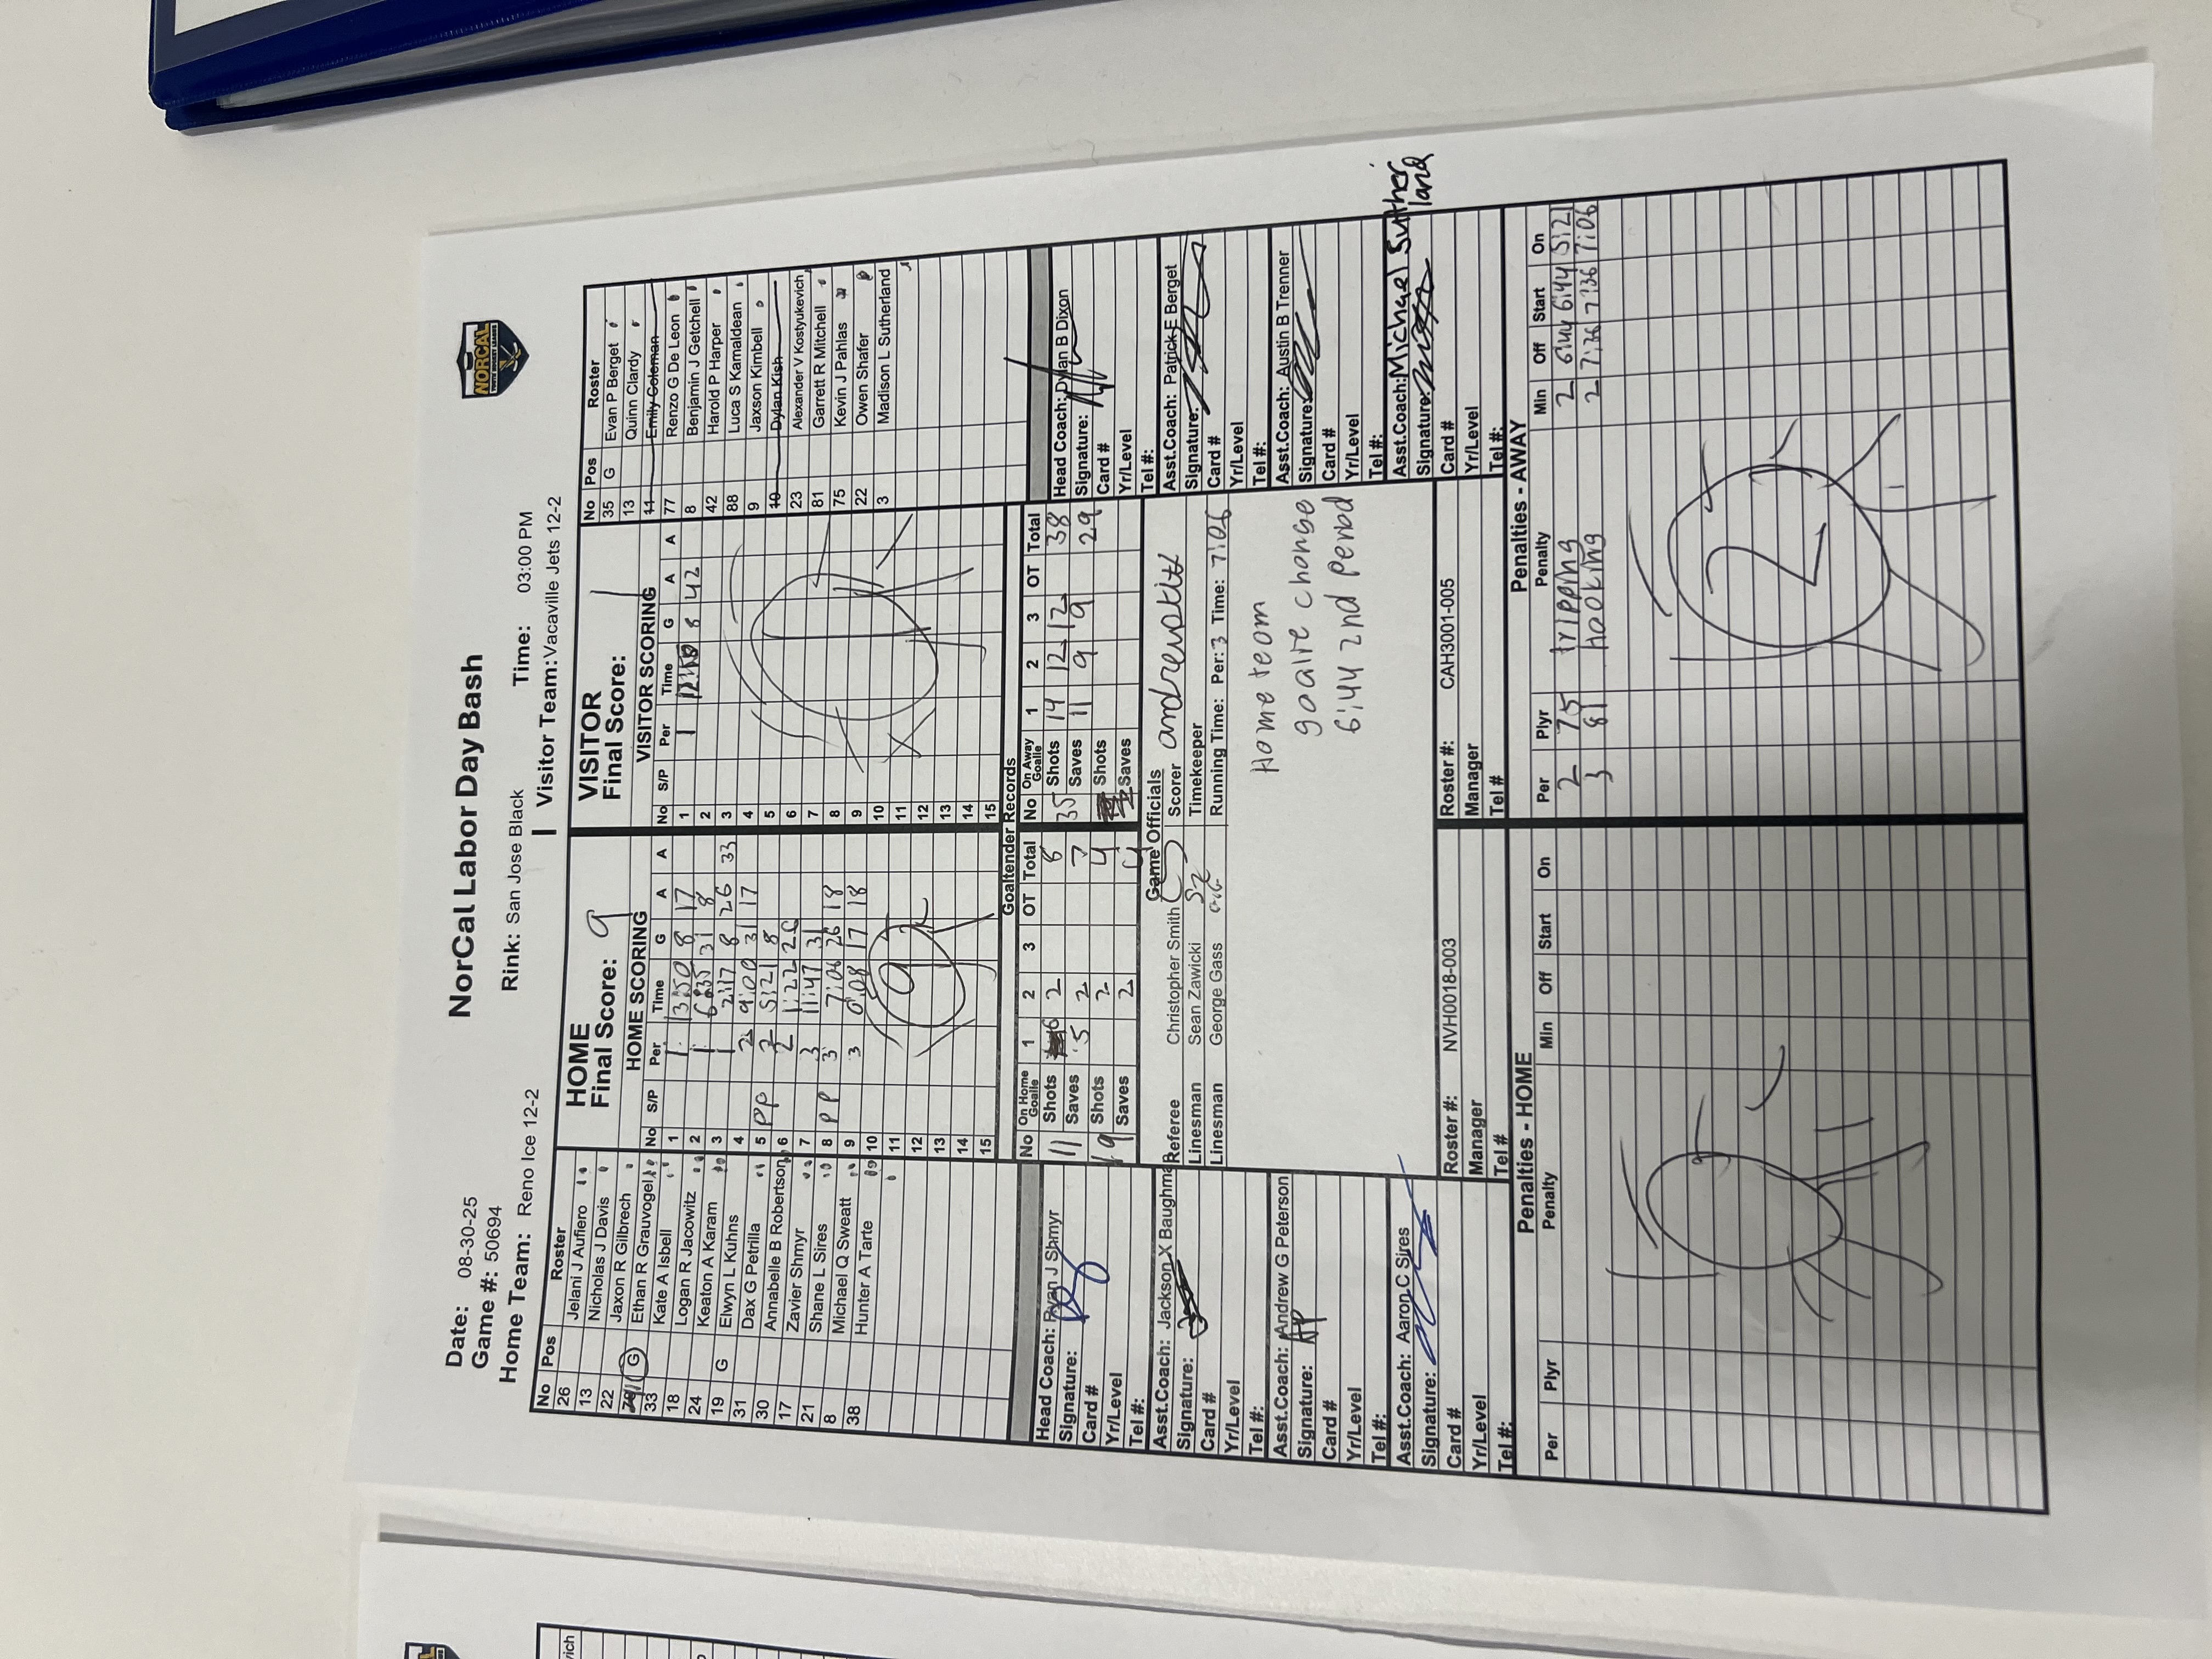 NorCal Labor Day Bash
NORCAL
Date: 08-30-25
Game #: 50694
Rink: San Jose Black
Time: 03:00 PM
Home Team: Reno Ice 12-2
Visitor Team: Vacaville Jets 12-2
No Pos Roster
26 Jelani J Aufiero
13 Nicholas J Davis
22 Jaxon R Gilbrech
G Ethan R Grauvogel
33 Kate A Isbell
18 Logan R Jacowitz
24 Keaton A Karam
19 G Elwyn L Kuhns
31 Dax G Petrilla
30 Annabelle B Robertson
17 Zavier Shmyr
21 Shane L Sires
8 Michael Q Sweatt
38 Hunter A Tarte
HOME
Final Score: 9
HOME SCORING
No S/P Per Time G A A
1 1 13:50 8 17
2 1 6:35 31 8
3 1 2:17 8 26 33
4 2 9:00 31 17
5 PP 2 5:21 8
6 2 1:22 26
7 3 11:47 31
8 PP 3 7:06 26 18
9 3 0:08 17 18
10
11
12
13
14
15
9
VISITOR
Final Score: 1
VISITOR SCORING
No S/P Per Time G A A
1 1 12:50 8 42
2
3
4
5
6
7
8
9
10
11
12
13
14
15
No Pos Roster
35 G Evan P Berget
13 Quinn Clardy
11 Emily Coleman
77 Renzo G De Leon
8 Benjamin J Getchell
42 Harold P Harper
88 Luca S Kamaldean
9 Jaxson Kimbell
10 Dylan Kish
23 Alexander V Kostyukevich
81 Garrett R Mitchell
75 Kevin J Pahlas
22 Owen Shafer
3 Madison L Sutherland
Goaltender Records
No On Home Goalie 1 2 3 OT Total
11 Shots 6 2 8
Saves 5 2 7
19 Shots 2 4
Saves 2 4
No On Away Goalie 1 2 3 OT Total
35 Shots 14 12 12 38
Saves 11 9 9 29
Shots
Saves
Head Coach: Ryan J Shmyr
Signature:
Card #
Yr/Level
Tel #:
Asst.Coach: Jackson X Baughma
Signature:
Card #
Yr/Level
Tel #:
Asst.Coach: Andrew G Peterson
Signature: AP
Card #
Yr/Level
Tel #:
Asst.Coach: Aaron C Sires
Signature:
Card #
Yr/Level
Tel #:
Game Officials
Referee Christopher Smith
Scorer
Linesman Sean Zawicki SZ
Timekeeper
Linesman George Gass
Running Time: Per: 3 Time: 7:06
Home team
goalie change
6:44 2nd period
Roster #: NVH0018-003
Manager
Tel #
Roster #: CAH3001-005
Manager
Tel #
Head Coach: Dylan B Dixon
Signature:
Card #
Yr/Level
Tel #:
Asst.Coach: Patrick E Berget
Signature:
Card #
Yr/Level
Tel #:
Asst.Coach: Austin B Trenner
Signature:
Card #
Yr/Level
Tel #:
Asst.Coach: Michael Sutherland
Signature:
Card #
Yr/Level
Tel #:
Penalties - HOME
Per Plyr Penalty Min Off Start On
Penalties - AWAY
Per Plyr Penalty Min Off Start On
2 75 tripping 2 6:44 6:44 5:21
3 81 hooking 2 7:36 7:36 7:06
2